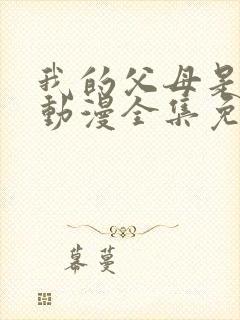 我的父母是
動漫全集免
幕蔓